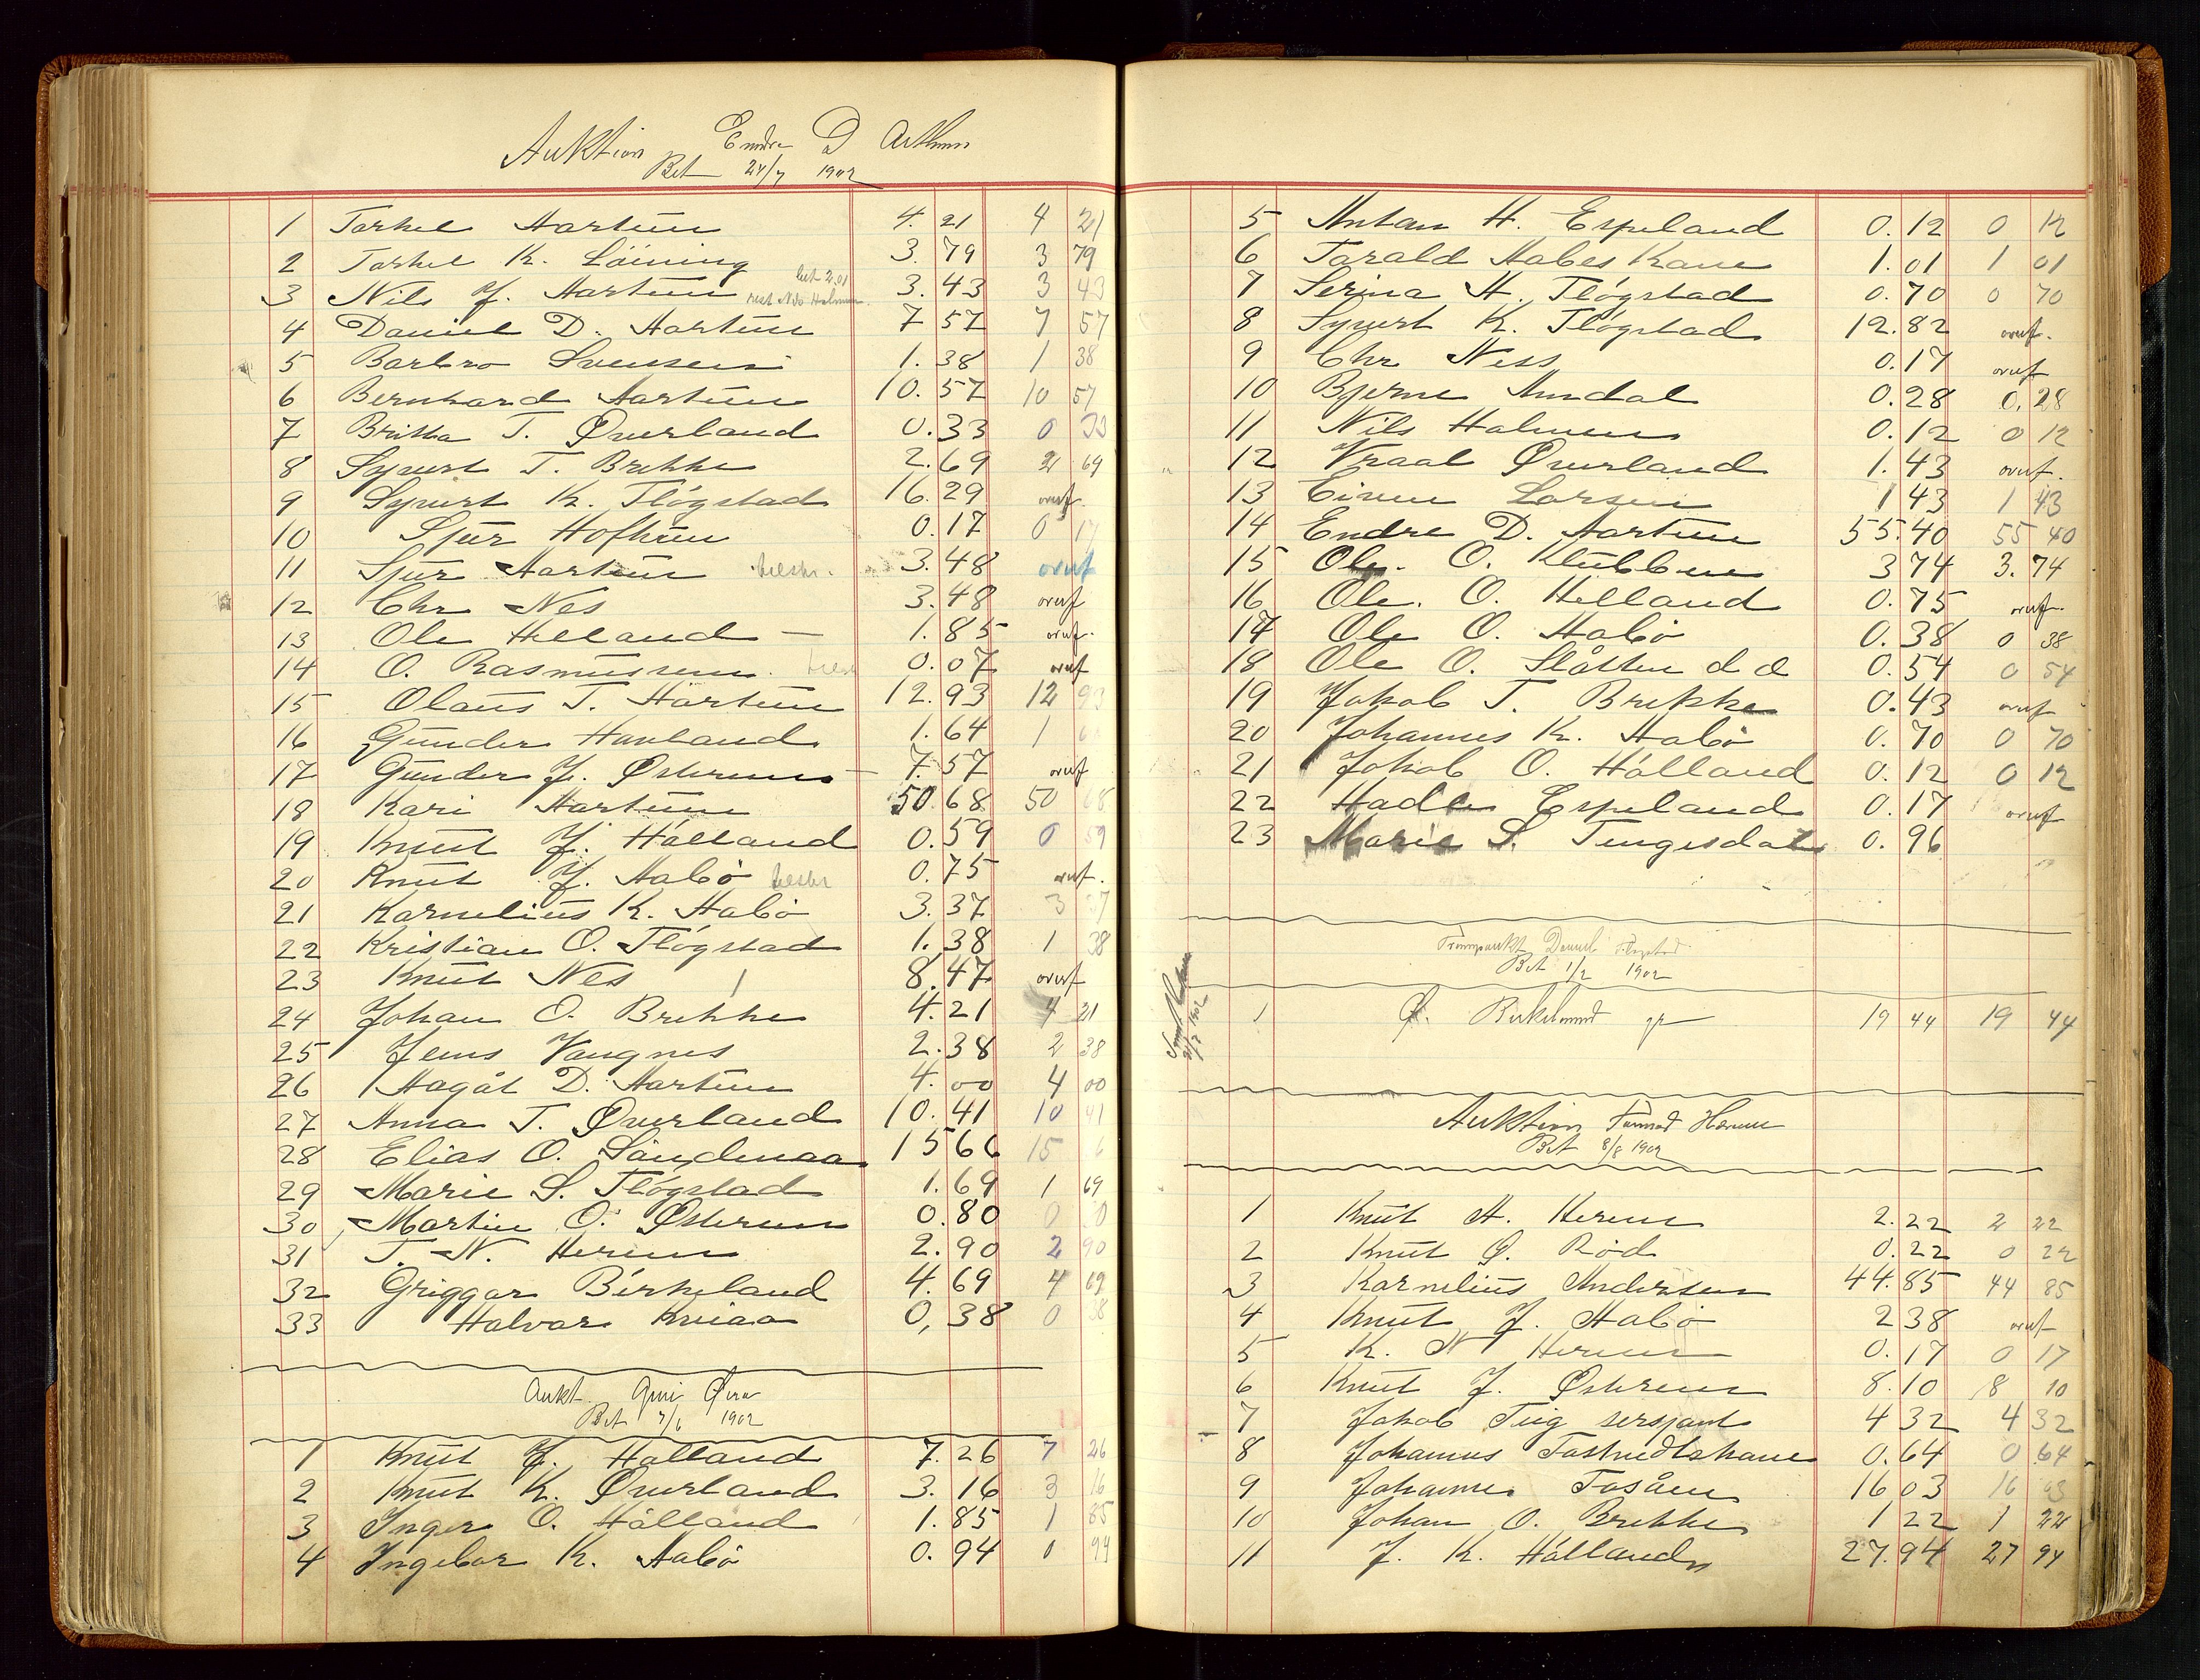 Auktion Endre D Arthun
Bet 24/7 1902
1 Torkel Aartun 4. 21 4 21
2 Torkel K. Löining 3. 79 3 79
3 Nils J. Aartun 3. 43 3 43
4 Daniel D. Aartun 7 57 7 57
5 Barbro Svensen 1. 38 1 38
6 Bernhard Aartun 10. 57 10 57
7 Britha T. Øverland 0. 33 0 33
8 Syvert T. Brekke 2. 69 2 69
9 Syvert K. Fløgstad 16. 29 overf.
10 Sjur Hofthun 0. 17 0 17
11 Sjur Aartun 3. 48 overf
12 Chr Nes 3. 48 overf
13 Ole Helland — 1. 85 overf.
14 O. Rasmussen 0. 07 overf
15 Olaus T. Aartun 12. 93 12 93
16 Gunder Havland 1. 64 1
17 Gunder J. Østrem 7. 57 overf
18 Kari Aartun 50. 68 50 68
19 Knut J. Hålland 0. 59 0 59
20 Knut J. Aabö 0. 75 overf.
21 Kornelius K. Aabö 3. 37 3 37
22 Kristian O. Fløgstad 1. 38 1 38
23 Knut Nes 8. 47 overf
24 Johan O. Brekke 4. 21 4 21
25 Jens Vangnes 2. 38 2 38
26 Aagåt D. Aartun 4. 00 4 00
27 Anna T. Øverland 10. 41 10 41
28 Elias O. Sandenaa 15 66 15 6
29 Marie S. Fløgstad 1. 69 1 69
30 Martin O. Østrem 0. 80 0 80
31 T. N. Herem 2. 90 2 90
32 Griggar Birkeland 4. 69 4 69
33 Halvar Kniaa 0, 38 0 38
Aukt. Guri Øvra
Bet 7/6 1902
1 Knut J. Hålland 7. 26 7 26
2 Knut K. Øverland 3. 16 3 16
3 Inger O. Hålland 1. 85 1 85
4 Ingebor K. Aabö 0. 94 0 94
5 Anton H. Espeland 0. 12 0 12
6 Torald Aabes Kone 1. 01 1 01
7 Serina H. Fløgstad 0. 70 0 70
8 Syvert K. Fløgstad 12. 82 overf.
9 Chr Ness 0. 17 overf
10 Bjerne Amdal 0. 28 0. 28
11 Nils Halmen 0. 12 0 12
12 Vraal Øverland 1. 43 overf.
13 Eivin Larsen 1 43 1 43
14 Endre D. Aartun 55. 40 55 40
15 Ole. O. Klubben 3 74 3. 74
16 Ole. O. Helland 0. 75 overf.
17 Ole O. Aabö 0. 38 0 38
18 Ole O. Slåtten d d 0. 54 0 54
19 Jakob T. Brekke 0. 43 overf
20 Johannes K. Aabö 0. 70 0 70
21 Jakob O. Hålland 0. 12 0 12
22 Hadle Espeland 0. 17 overf
23 Marie S. Tengesdal 0. 96
Daniel
Bet 1/2 1902
1 Ø. Birkelund 19 44 19 44
Auktion Tormod Herem
Bet 8/8 1902
1 Knut A. Herem 2. 22 2 22
2 Knut Ø. Rød 0. 22 0 22
3 Kornelius Andersen 44. 85 44 85
4 Knut J. Aabö 2 38 overf
5 K. N Herem 0. 17 0 17
6 Knut J. Østrem 8. 10 8 10
7 Jakob Teig sersjant 4 32 4 32
8 Johannes Fastvedtskane 0. 64 0 64
9 Johannes Fosåen 16 03 16 03
10 Johan O. Brekke 1 22 1 22
11 J. K. Hålland 27. 94 27 94